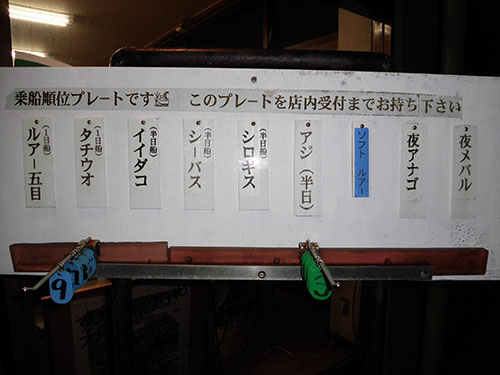 乗船順位プレートです このプレートを店内受付までお持ち下さい
(1日船) ルアー五目
(1日船) タチウオ
(半日船) イイダコ
(半日船) シーバス
(半日船) シロキス
アジ (半日)
ソフト ルアー
夜アナゴ
夜メバル
9